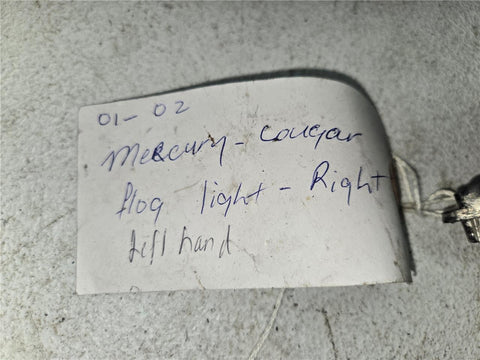 01-02
Mercury - Cougar
flog light - Right
Left hand